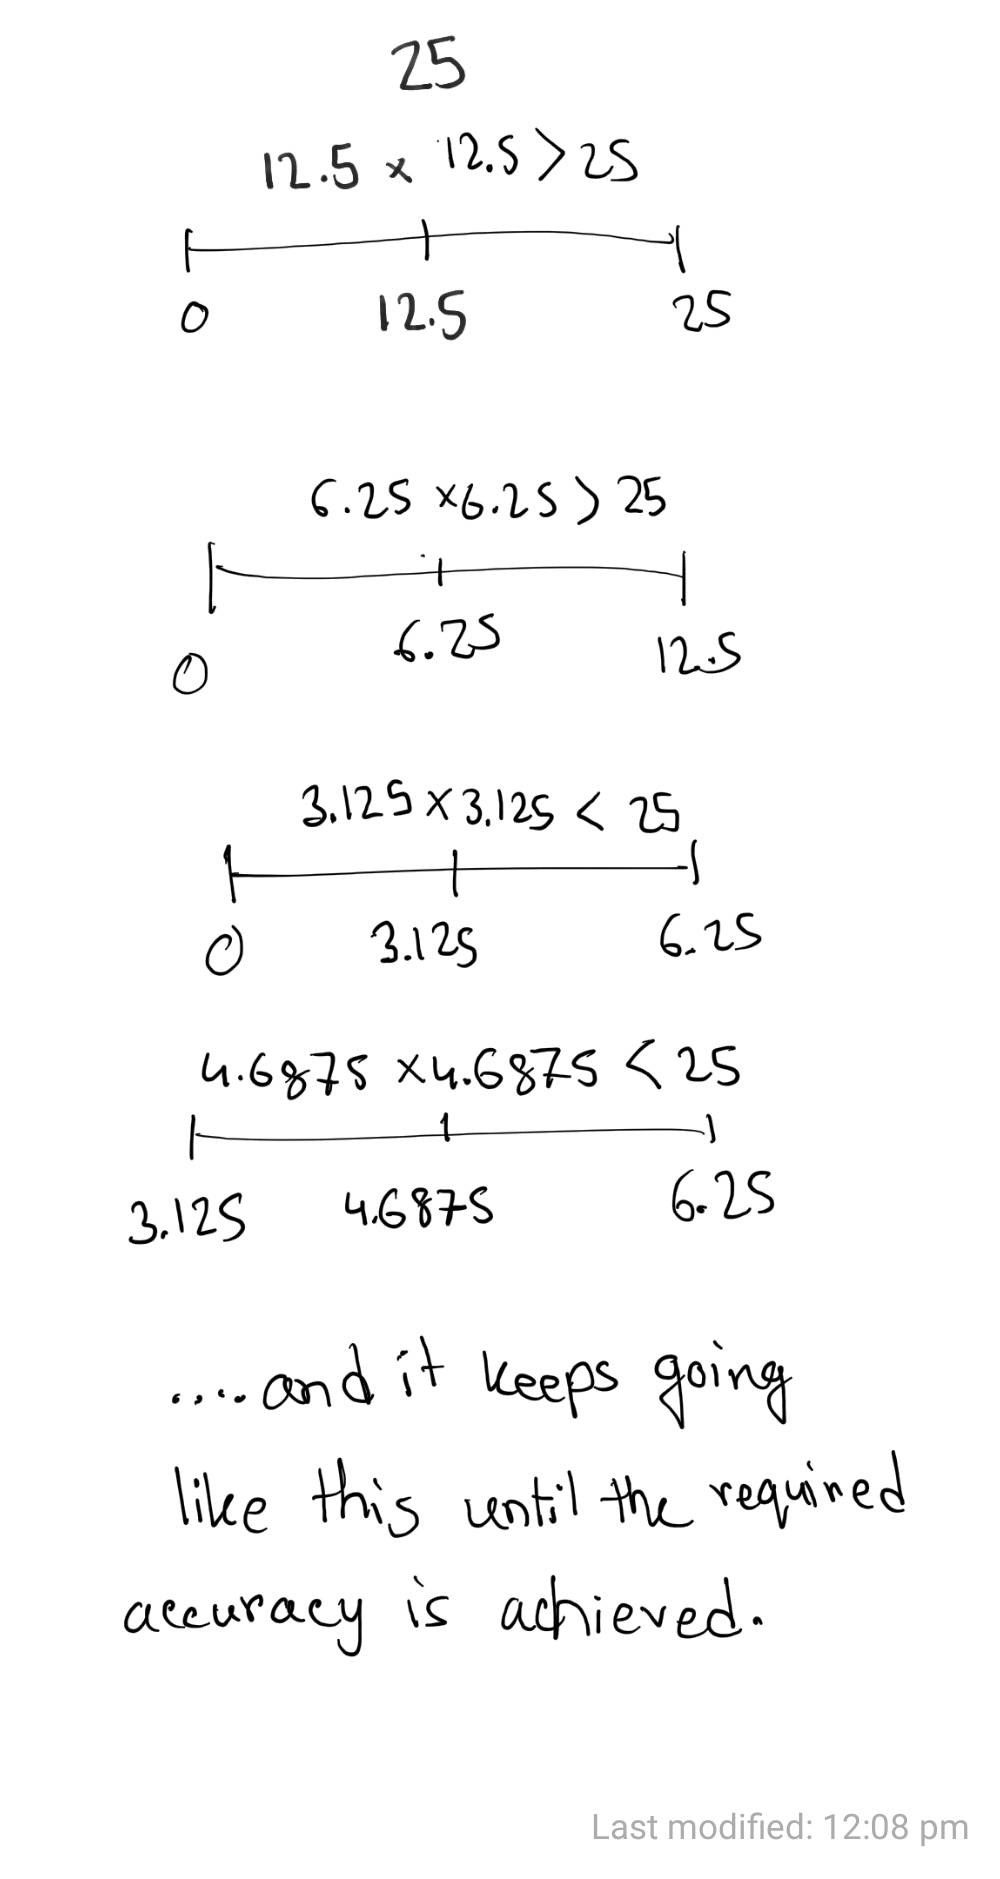 25
12.5 x 12.5 > 25
0 12.5 25
6.25 x 6.25 > 25
0 6.25 12.5
3.125 x 3.125 < 25
0 3.125 6.25
4.6875 x 4.6875 < 25
3.125 4.6875 6.25
.... and it keeps going
like this until the required
accuracy is achieved.
Last modified: 12:08 pm